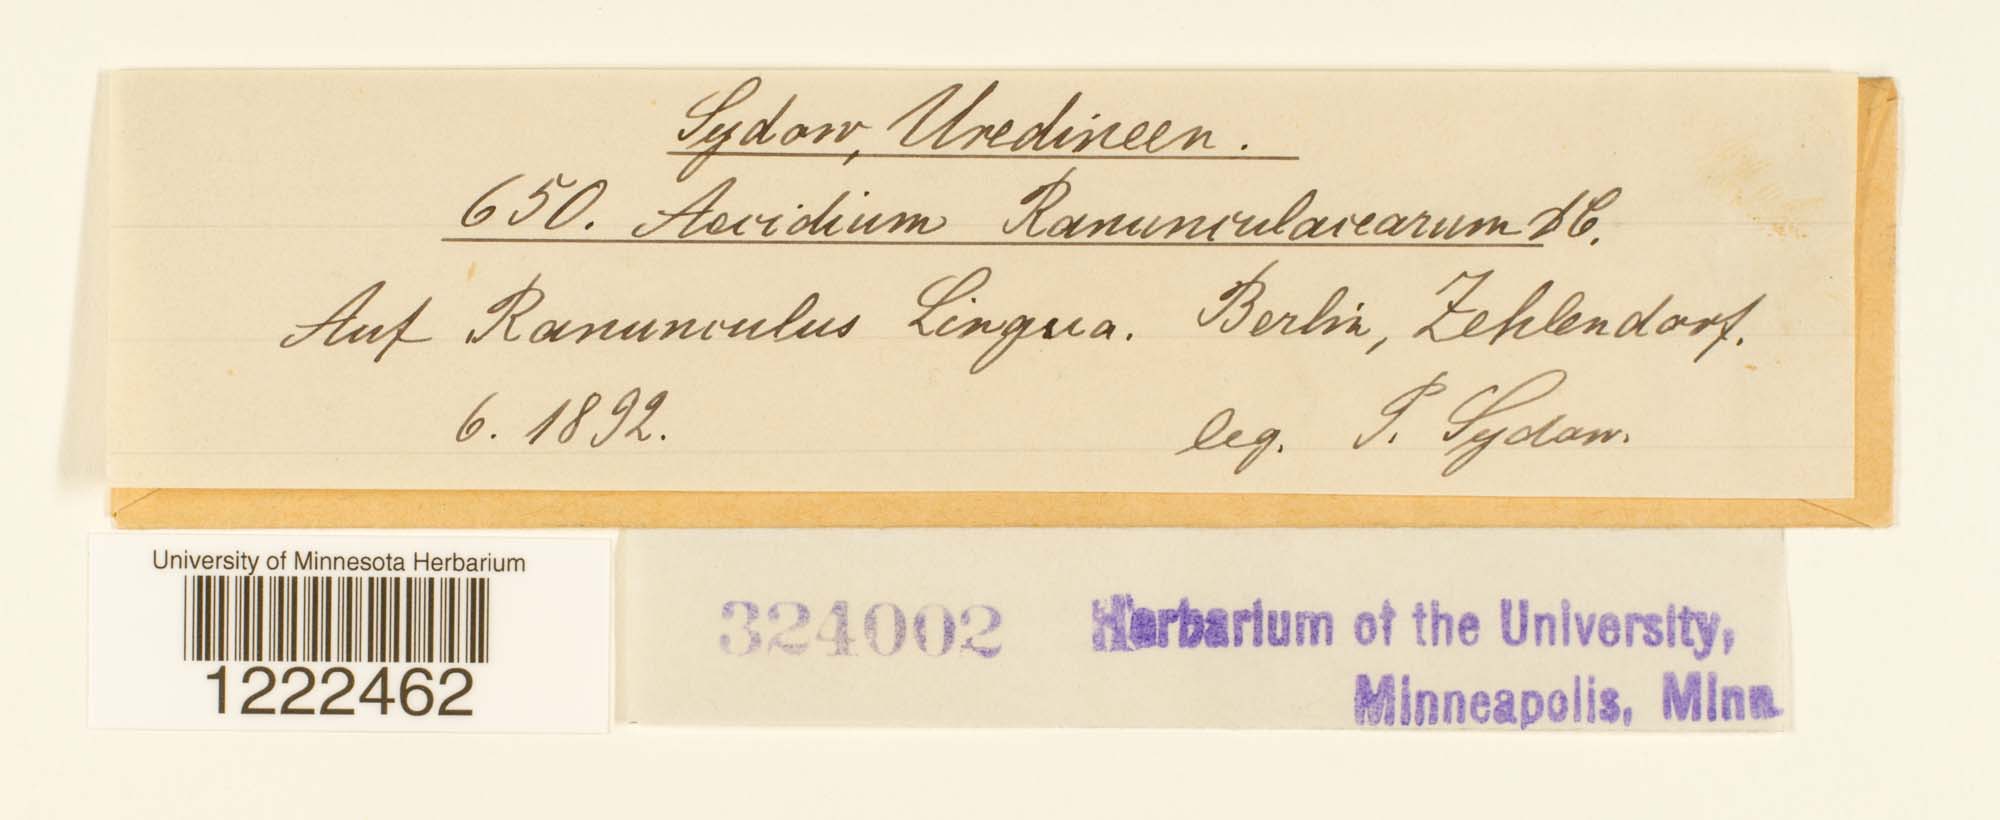 Sydow, Uredineen.
650. Aecidium Ranunculacearum DC.
Auf Ranunculus Lingua. Berlin, Zehlendorf.
6. 1892. leg. P. Sydow.
University of Minnesota Herbarium
1222462
324002
Herbarium of the University,
Minneapolis, Minn